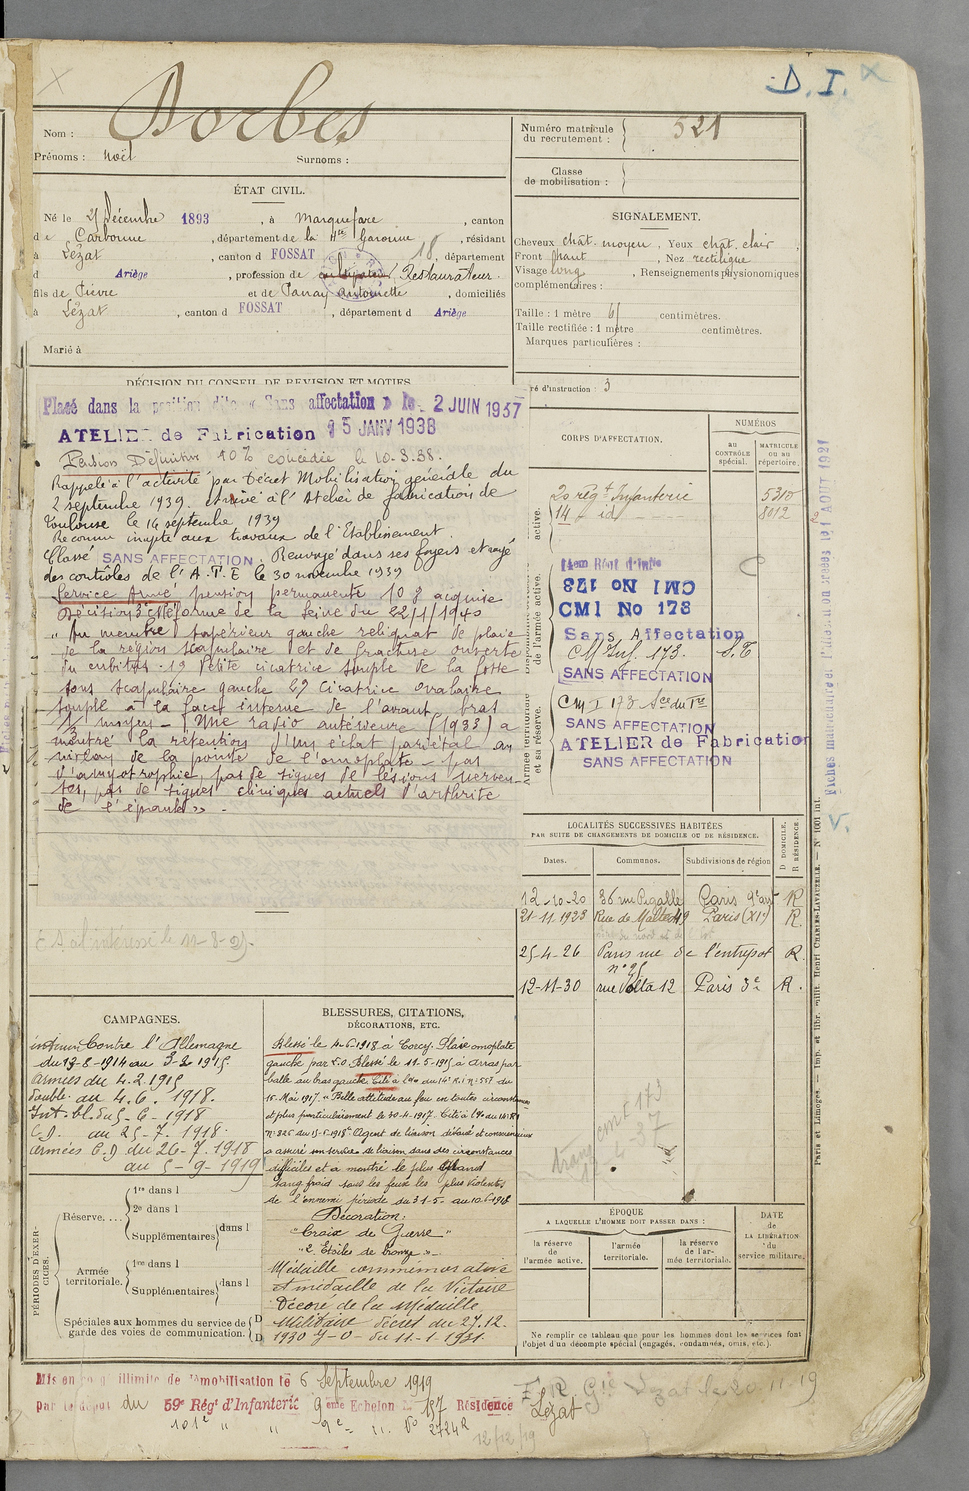 D. I.
Nom : Borbes
Prénoms : Noël Surnoms :
Numéro matricule du recrutement : 521
Classe de mobilisation :
ÉTAT CIVIL.
Né le 25 Décembre 1893, à Marquefave, canton
de Carbonne, département de la Hte Garonne, résidant
à Lézat, canton d FOSSAT 18, département
d Ariège, profession de Restaurateur.
fils de Pierre et de Panay Antoinette, domiciliés
à Lézat, canton d FOSSAT, département d Ariège
Marié à
SIGNALEMENT.
Cheveux chat. moyen, Yeux chat. clair,
Front haut, Nez rectiligne
Visage long, Renseignements physionomiques
complémentaires :
Taille : 1 mètre 61 centimètres.
Taille rectifiée : 1 mètre centimètres.
Marques particulières :
DÉCISION DU CONSEIL DE REVISION ET MOTIFS
ré d'instruction : 3
Placé dans la position dite « Sans affectation » le 2 JUIN 1937
ATELIER de Fabrication 15 JANV 1938
Pension Définitive 10% concédée le 10.3.38.
Rappelé à l'activité par Décret Mobilisation générale du
2 septembre 1939. Arrivé à l'Atelier de fabrication de
Toulouse le 14 septembre 1939
Reconnu inapte aux travaux de l'Etablissement.
Classé SANS AFFECTATION. Renvoyé dans ses foyers et rayé
des contrôles de l'A.T.E le 30 novembre 1939
Service Armé pension permanente 10 % acquise
Décision 3e Cion Réforme de la Seine du 22/1/1940
" Au membre supérieur gauche reliquat de plaie
de la région scapulaire et de fracture ouverte
du cubitus. 1° Petite cicatrice souple de la fosse
sous scapulaire gauche 2° Cicatrice ovalaire
souple à la face interne de l'avant bras
1/3 moyen - Une radio antérieure (1933) a
montré la rétention d'un éclat pariétal au
niveau de la pointe de l'omoplate - pas
d'amyotrophie, pas de signes de lésions nerveu-
ses, pas de signes cliniques actuels d'arthrite
de l'épaule » -
CORPS D'AFFECTATION.
NUMÉROS
au CONTRÔLE spécial.
MATRICULE ou au répertoire.
active.
20 régt Infanterie 5310
14 - id - 8012
de l'armée active.
CMI No 173
CMI No 173
Sans Affectation
CM Inf. 173. S.T
SANS AFFECTATION
Armée territoriale et sa réserve.
CM I 173
SANS AFFECTATION
ATELIER de Fabrication
SANS AFFECTATION
LOCALITÉS SUCCESSIVES HABITÉES
PAR SUITE DE CHANGEMENTS DE DOMICILE OU DE RÉSIDENCE.
Dates. Communes. Subdivisions de région D DOMICILE. R RÉSIDENCE.
12-10-20 36 rue Pigalle Paris 9e arrt R
21-11-1923 Rue de Malte 49 Paris (XIe) R
25-4-26 Paris rue de l'entrepot R.
n° 25
12-11-30 rue Volta 12 Paris 3e R.
CAMPAGNES.
Contre l'Allemagne
du 13-8-1914 au 3-2-1915.
Armées du 4-2-1915
double au 4.6.1918.
Int. bl. du 5-6-1918
C.D. au 25-7-1918.
Armées C.D du 26-7-1918
au 5-9-1919
BLESSURES, CITATIONS,
DÉCORATIONS, ETC.
Blessé le 4-6-1918 à Corcy. Plaie omoplate
gauche par E.O Blessé le 11-5-1915 à Arras par
balle au bras gauche. Cité à l'Ordre du 14e R.I n° 557 du
15 Mai 1917. "Belle attitude au feu en toutes circonstances
et plus particulièrement le 30-4-1917. Cité à l'Ordre du 14e RI
n° 325 du 15-6-1918 "Agent de liaison dévoué et consciencieux
a assuré son service de liaison dans des circonstances
difficiles et a montré le plus grand
sang froid sous les feux les plus violents
de l'ennemi période du 31-5- au 10-6-1918
Décoration:
"Croix de Guerre"
"2 Etoiles de bronze" -
Médaille commémorative
et médaille de la Victoire
Décoré de la Médaille
Militaire décret du 27.12.
1930 J-O- du 11-1-1931.
PÉRIODES D'EXERCICES.
Réserve. ....
1re dans l
2e dans l
Supplémentaires dans l
Armée territoriale.
1re dans l
Supplémentaires dans l
Spéciales aux hommes du service de D
garde des voies de communication. D
ÉPOQUE
A LAQUELLE L'HOMME DOIT PASSER DANS :
la réserve de l'armée active.
l'armée territoriale.
la réserve de l'armée territoriale.
DATE de LA LIBÉRATION du service militaire.
Ne remplir ce tableau que pour les hommes dont les services font
l'objet d'un décompte spécial (engagés, condamnés, omis, etc.).
Mis en congé illimité de démobilisation le 6 Septembre 1919
par le dépôt du 59e Régt d'Infanterie 9eme Echelon N° 157 Résidence Lézat
12/12/19
Paris et Limoges. — Imp. et libr. milit. Henri CHARLES-LAVAUZELLE. — N° 1001 int.